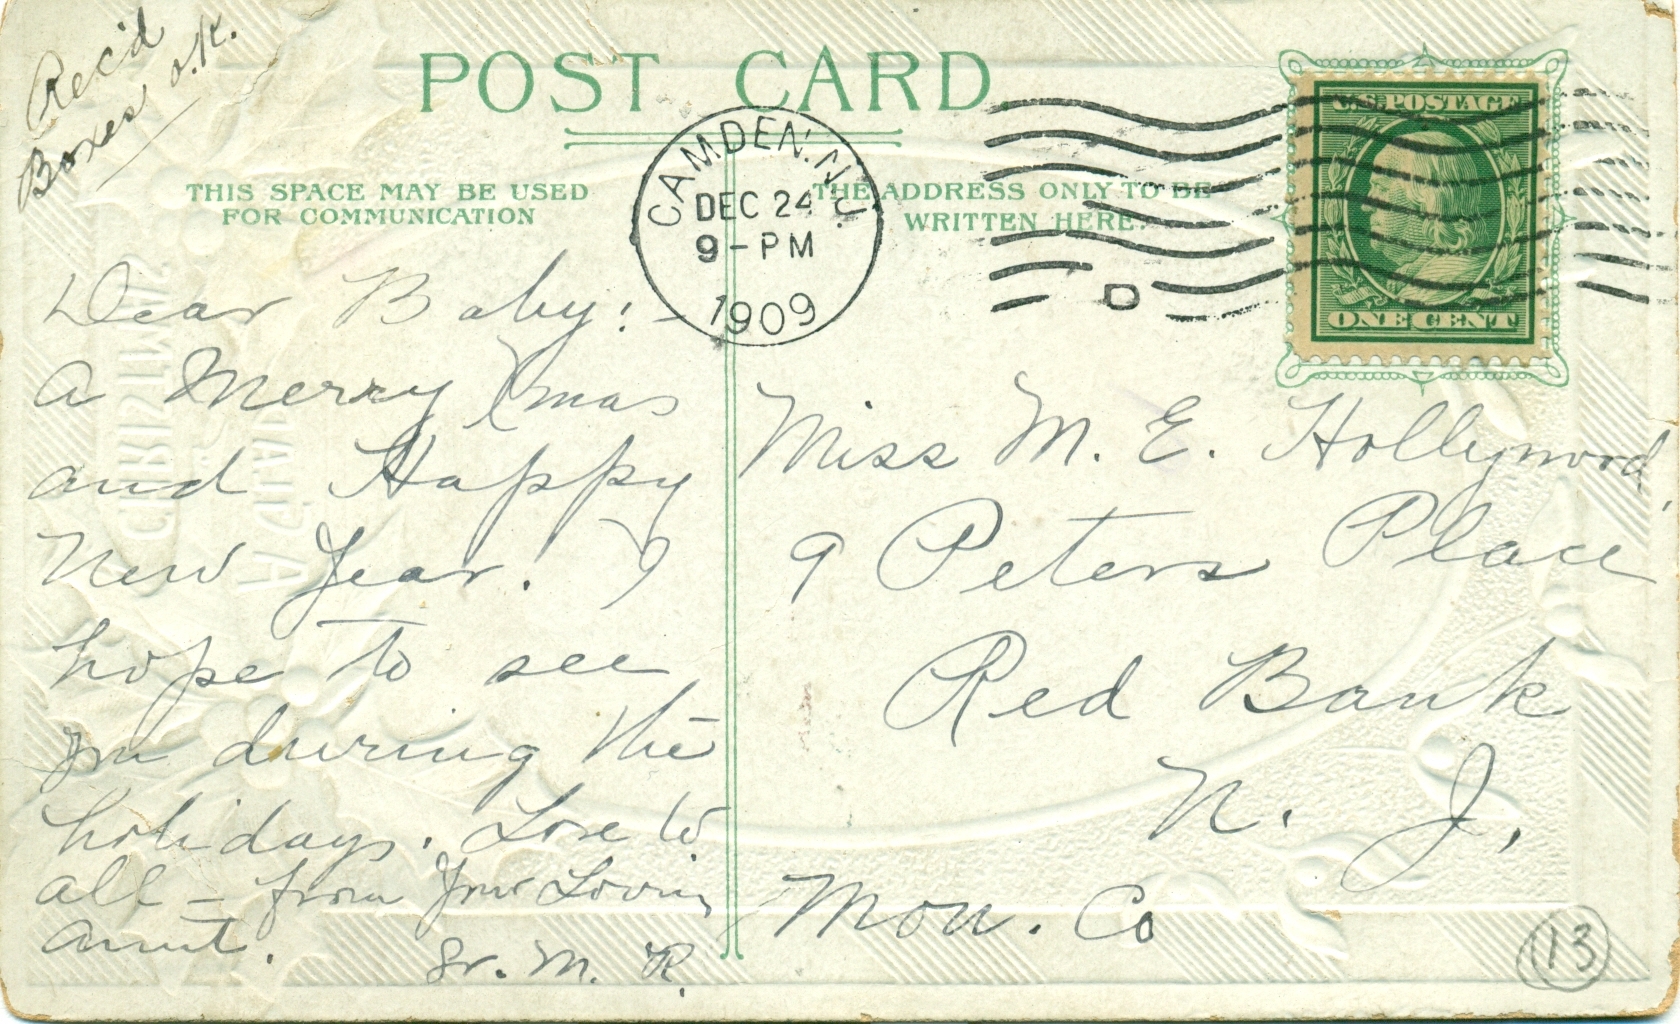 Rec'd
Boxes o.k.
POST CARD
THIS SPACE MAY BE USED
FOR COMMUNICATION
THE ADDRESS ONLY TO BE
WRITTEN HERE.
CAMDEN. N.J.
DEC 24
9-PM
1909
D
U.S. POSTAGE
ONE CENT
Dear Baby! -
A Merry Xmas
and Happy
New Year. I
hope to see
you during the
holidays. Love to
all - from Your Loving
Aunt.
Sr. M. R.
Miss M. E. Hollywood,
9 Peters Place
Red Bank
N. J.
Mon. Co
13